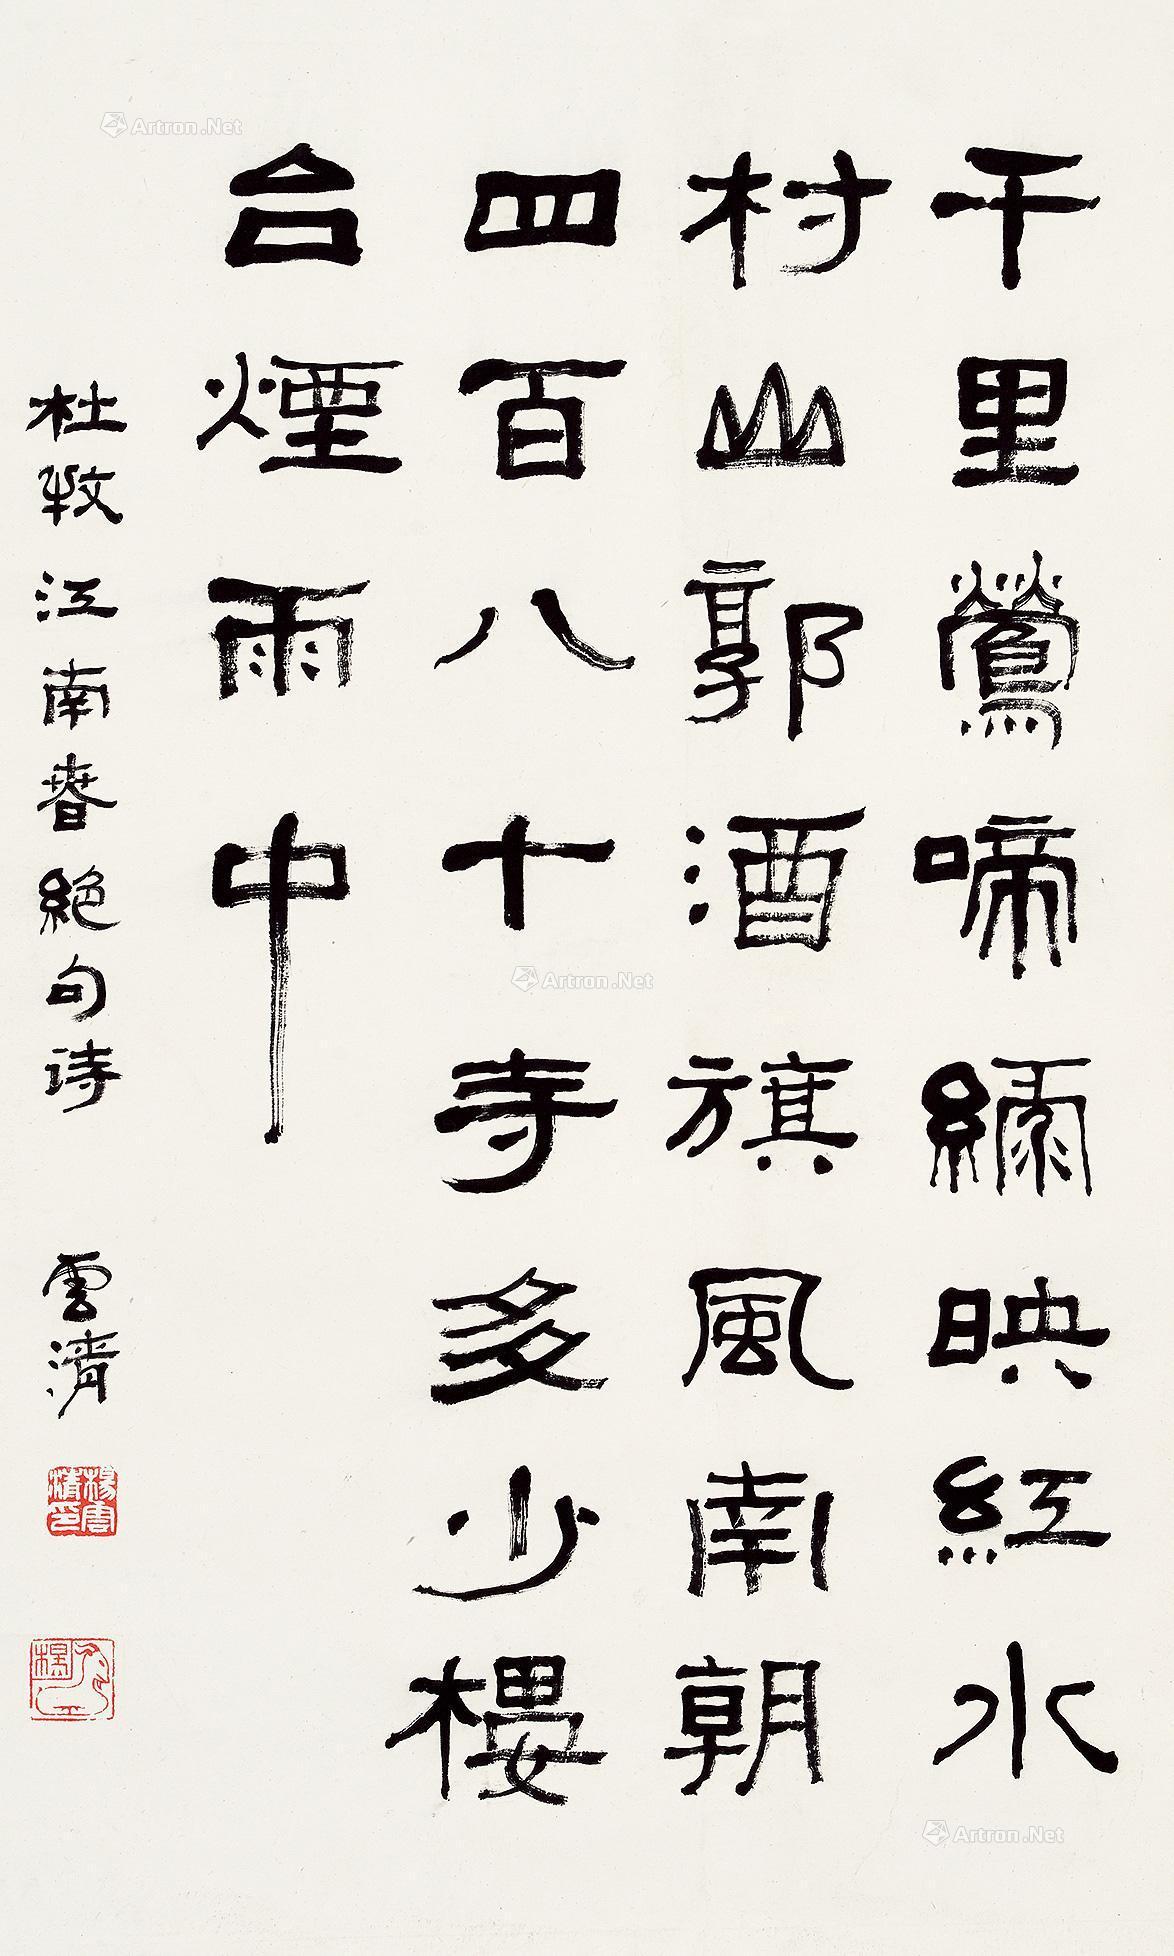 千里鶯啼綠映紅水
村山郭酒旗風南朝
四百八十寺多少樓
台煙雨中
杜牧江南春絶句诗 雲清
楊雲清印
Artron.Net
Artron.Net
Artron.Net